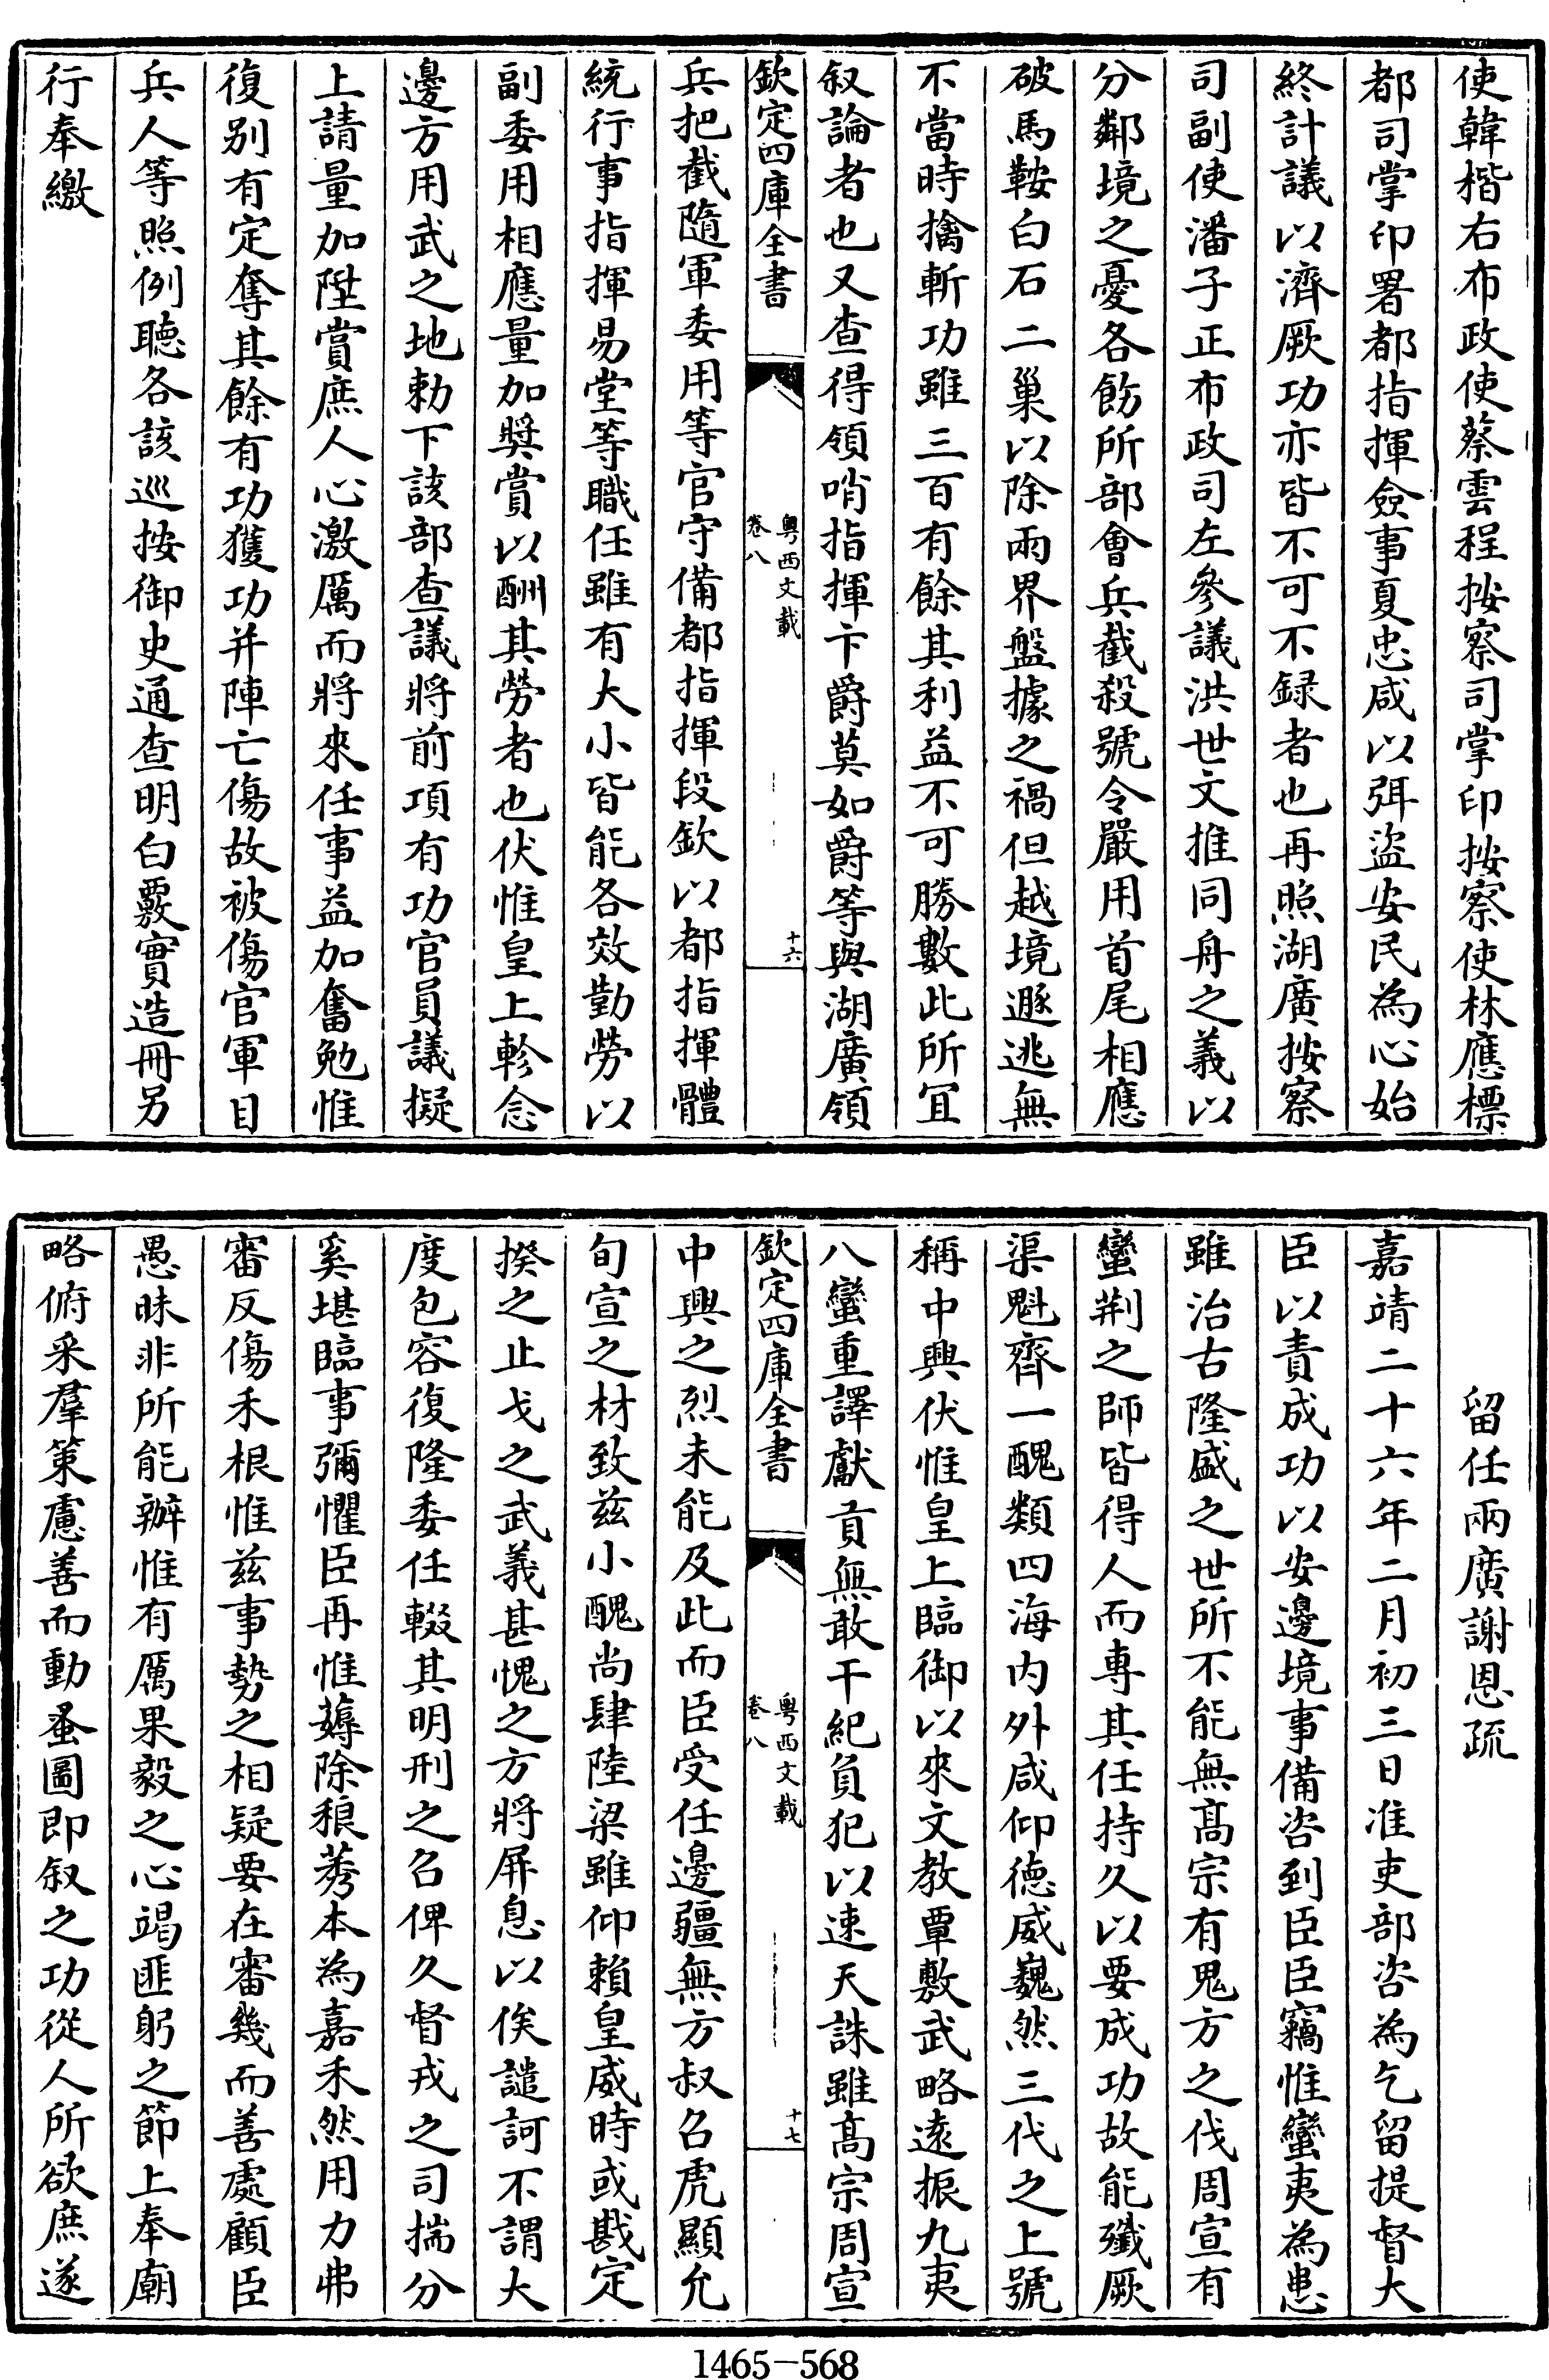 使韓楷右布政使蔡雲程按察司掌印按察使林應標
都司掌印署都指揮僉事夏忠咸以弭盜安民為心始
終計議以濟厥功亦皆不可不録者也再照湖廣按察
司副使潘子正布政司左參議洪世文推同舟之義以
分鄰境之憂各飭所部會兵截殺號令嚴用首尾相應
破馬鞍白石二巢以除兩界盤據之禍但越境遯逃無
不當時擒斬功雖三百有餘其利益不可勝數此所宜
叙論者也又查得領哨指揮卞爵莫如爵等與湖廣領
欽定四庫全書
粤西文載
卷八
十六
兵把截隨軍委用等官守備都指揮段欽以都指揮體
統行事指揮易堂等職任雖有大小皆能各效勤勞以
副委用相應量加奬賞以酬其勞者也伏惟皇上軫念
邊方用武之地勅下該部查議將前項有功官員議擬
上請量加陞賞庶人心激厲而將來任事益加奮勉惟
復别有定奪其餘有功獲功并陣亡傷故被傷官軍目
兵人等照例聽各該巡按御史通查明白覈實造冊另
行奉繳
留任兩廣謝恩疏
嘉靖二十六年二月初三日准吏部咨為乞留提督大
臣以責成功以安邊境事備咨到臣臣竊惟蠻夷為患
雖治古隆盛之世所不能無髙宗有鬼方之伐周宣有
蠻荆之師皆得人而專其任持久以要成功故能殲厥
渠魁齊一醜類四海内外咸仰德威巍然三代之上號
稱中興伏惟皇上臨御以來文教覃敷武略遠振九夷
八蠻重譯獻貢無敢干紀負犯以速天誅雖髙宗周宣
欽定四庫全書
粤西文載
卷八
十七
中興之烈未能及此而臣受任邊疆無方叔召虎顯允
旬宣之材致兹小醜尚肆陸梁雖仰賴皇威時或戡定
揆之止戈之武義甚愧之方將屏息以俟譴訶不謂大
度包容復隆委任輟其明刑之召俾久督戎之司揣分
奚堪臨事彌懼臣再惟薅除稂莠本為嘉禾然用力弗
審反傷禾根惟兹事勢之相疑要在審幾而善處顧臣
愚昧非所能辦惟有厲果毅之心竭匪躬之節上奉廟
略俯采羣策慮善而動蚤圖即叙之功從人所欲庶遂
1465-568